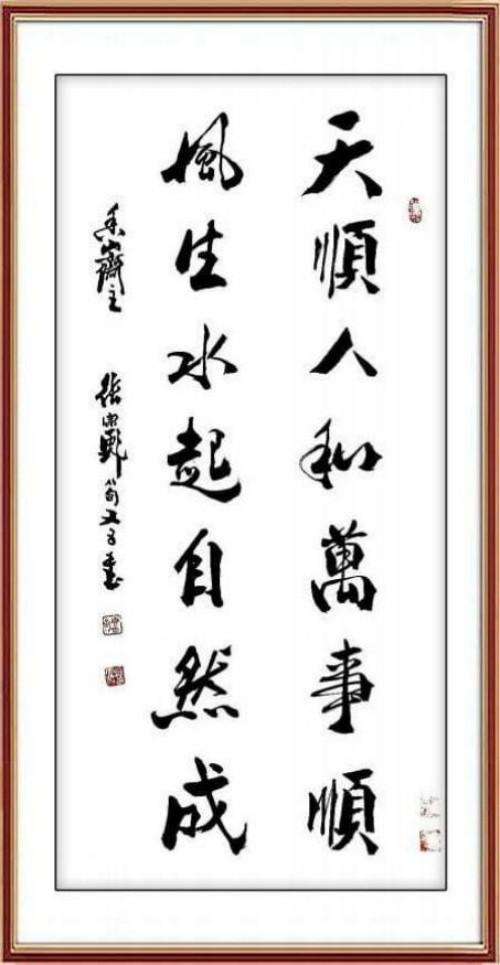 天順人和萬事順
風生水起自然成